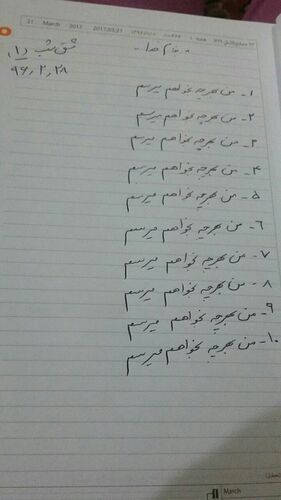 21 March 2017 2017/03/21
به نام خدا
مشق شب ۱۰
۹۶,۲,۲۸
۱- من بهرچه بخواهم میرسم
۲- من بهرچه بخواهم میرسم
۳- من بهرچه بخواهم میرسم
۴- من بهرچه بخواهم میرسم
۵- من بهرچه بخواهم میرسم
۶- من بهرچه بخواهم میرسم
۷- من بهرچه بخواهم میرسم
۸- من بهرچه بخواهم میرسم
۹- من بهرچه بخواهم میرسم
۱۰- من بهرچه بخواهم میرسم
March